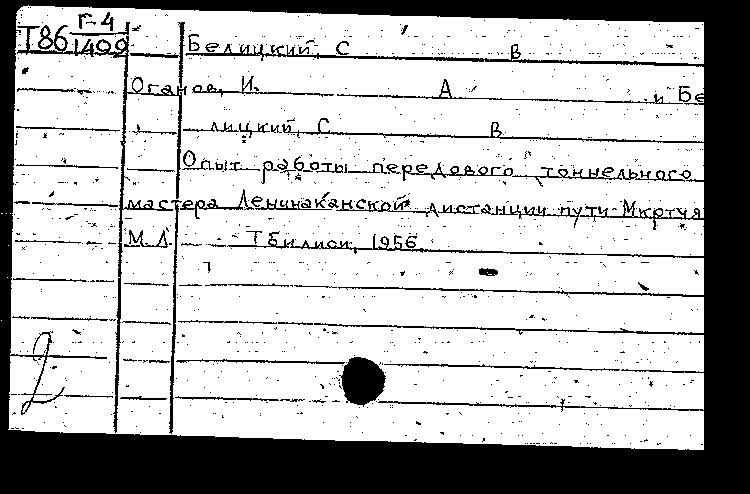 Т86 Г-4
1409
Белицкий, С В
Оганов, И. А и Бе
лицкий, С В
Опыт работы передового тоннельного
мастера Ленинаканской дистанции пути Мкртчя
М.Л. Тбилиси, 1956.
2